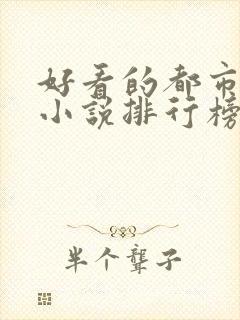 好看的都市
小说排行榜
半个聋子